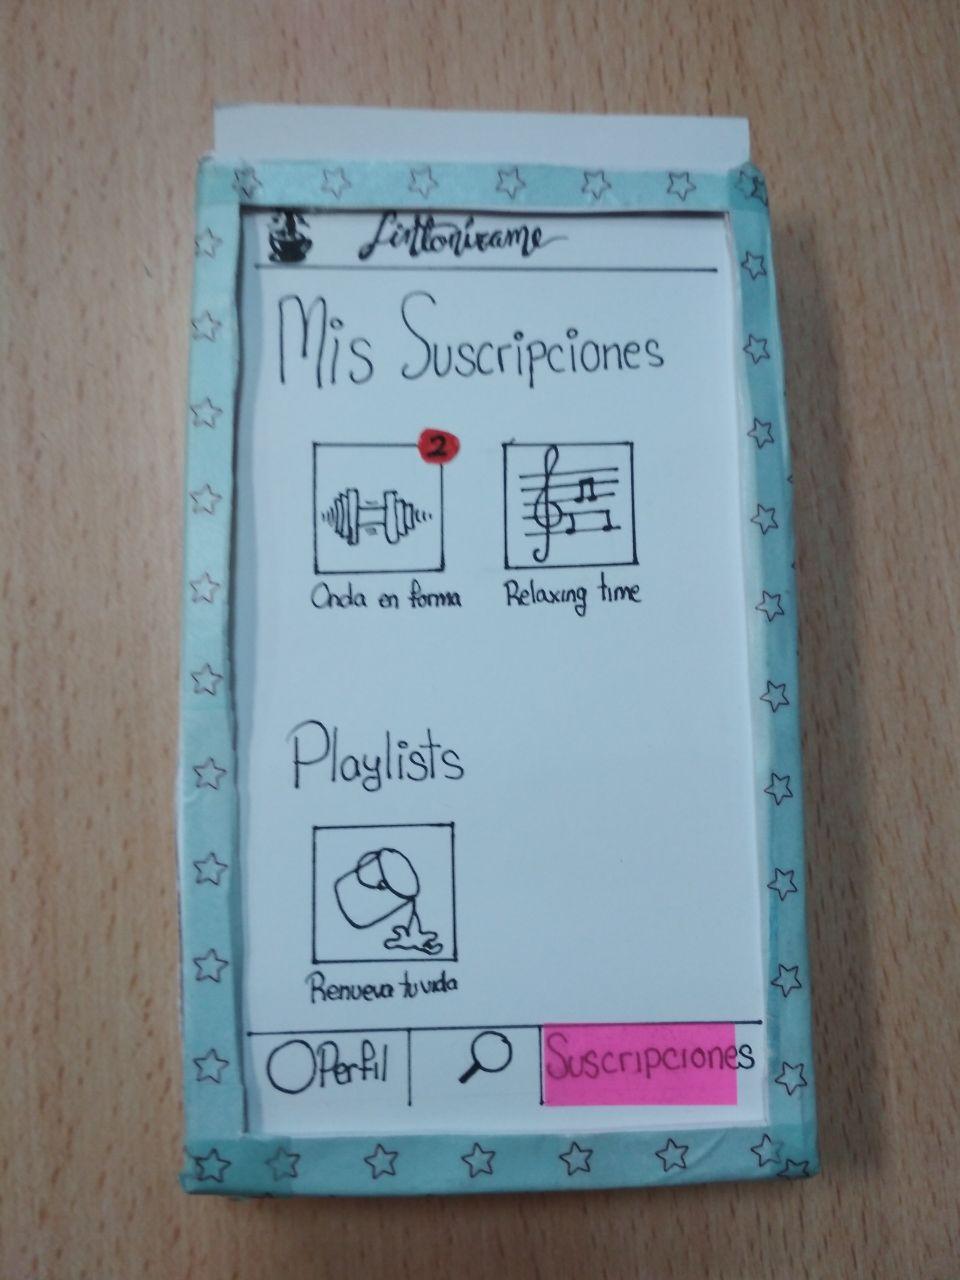 Sinttonizame
Mis Suscripciones
2
Onda en forma
Relaxing time
Playlists
Renueva tu vida
Perfil
Suscripciones